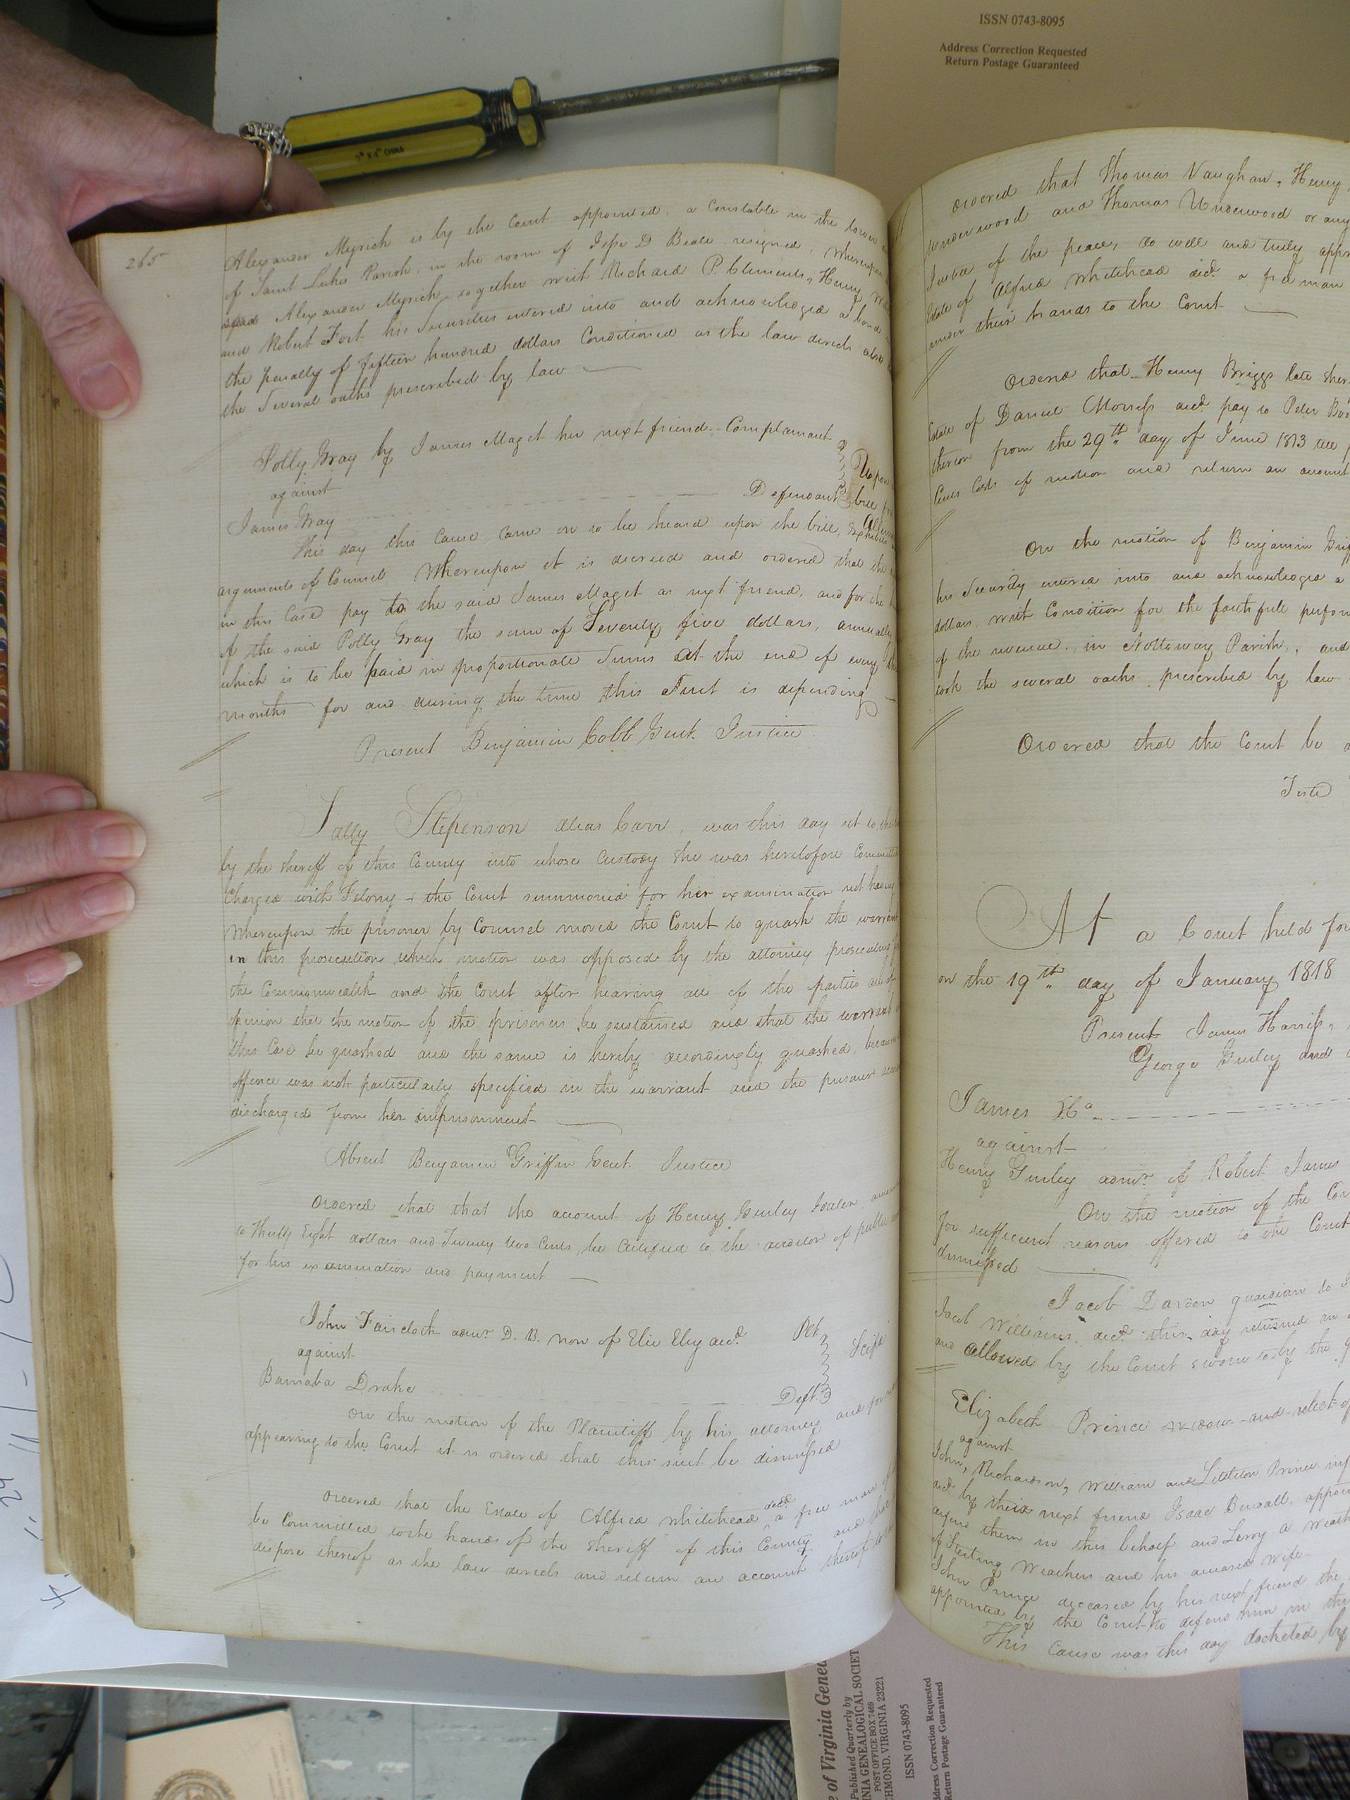 ISSN 0743-8095
Address Correction Requested
Return Postage Guaranteed
265
Alexander Myrick is by the Court appointed a Constable in the lower
of Saint Lukes Parish, in the room of D Beale resigned, Whereupon
said Alexander Myrick together with Richard P Clements, Henry
and Robert Fort his Securities entered into and acknowledged a bond
the penalty of fifteen hundred dollars Conditioned as the law directs also
the Several oaths prescribed by law
Polly Gray by James Maget her next friend - Complainant
against
James Gray Defendant
Upon
bill
This day this Cause came on to be heard upon the bill, Exhibits
arguments of Counsel Whereupon it is decreed and ordered that the
in this Case pay to the said James Maget as next friend, and for the
of the said Polly Gray the sum of Seventy five dollars, annually
which is to be paid in proportionate Sums at the end of every
months for and during the time this Suit is depending
Present Benjamin Cobb Gent. Justice
Sally Stepenson alias Carr, was this day set to the
by the Sheriff of this County into whose Custody She was heretofore Committed
Charged with Felony & the Court summoned for her examination not having
Whereupon the prisoner by Counsel moved the Court to quash the warrant
in this prosecution which motion was opposed by the attorney prosecuting
the Commonwealth and the Court after hearing all of the parties are of
opinion that the motion of the prisoner be sustained and that the warrant
this Case be quashed and the same is hereby accordingly quashed, because
offence was not particularly specified in the warrant and the prisoner
discharged from her imprisonment
Absent Benjamin Griffin Gent. Justice
Ordered that that the account of Henry Gurley Jailer
to Thirty Eight dollars and Twenty two Cents, be Certified to the auditor of public
for his examination and payment
John Faircloth admr D. B. non of Elie Eley decd. Plt
against
Barnaba Drake Deft
On the motion of the Plaintiff by his attorney and for
appearing to the Court it is ordered that this suit be dismissed
Ordered that the Estate of Alfred Whitehead decd a free man
be Committed to the hands of the Sheriff of this County and that
dispose thereof as the law directs and return an account thereof
Ordered that Thomas Vaughan, Henry
Underwood and Thomas Underwood or any
Justice of the peace, do well and truly
Estate of Alfred Whitehead decd. a free man
under their hands to the Court
Ordered that Henry Briggs late
Estate of Daniel Morriss decd pay to Peter
thereon from the 29th day of June 1813
Cents Costs of motion and return an account
On the motion of Benjamin
his Security entered into and acknowledged a
dollars, with Condition for the faithfull
of the revenue, in Nottoway Parish, and
took the several oaths prescribed by law
Ordered that the Court be
Teste
At a Court held for
on the 19th day of January 1818
Present James Harriss,
George Gurley and
James
against
Henry Gurley admr. of Robert James
On the motion of the
for sufficient reasons offered to the Court
dismissed
Jacob Darden guardian to
Jacob Williams decd. this day returned an
and allowed by the Court sworn to by the
Elizabeth Prince widow and relict of
against
John, Richardson, William and Littleton Prince
and by their next friend Isaac
them in this behalf and Leroy A
of Sterling and his wife
John Prince deceased by his next friend the
appointed by the Court to defend him in this
This Cause was this day docketed by
Published Quarterly by
POST OFFICE BOX 7469
ISSN 0743-8095
Address Correction Requested
Return Postage Guaranteed